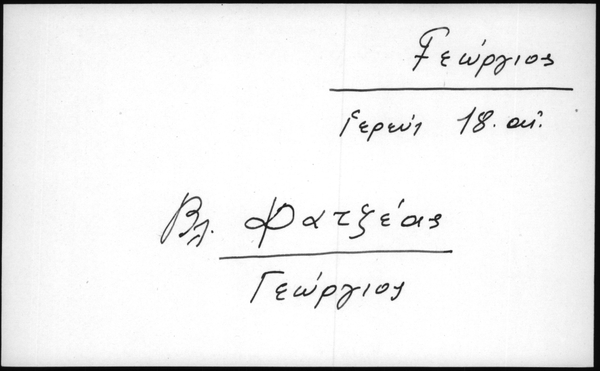 Γεώργιος
Ιερεύς 18. αι.
Βλ. Φατζέας
Γεώργιος